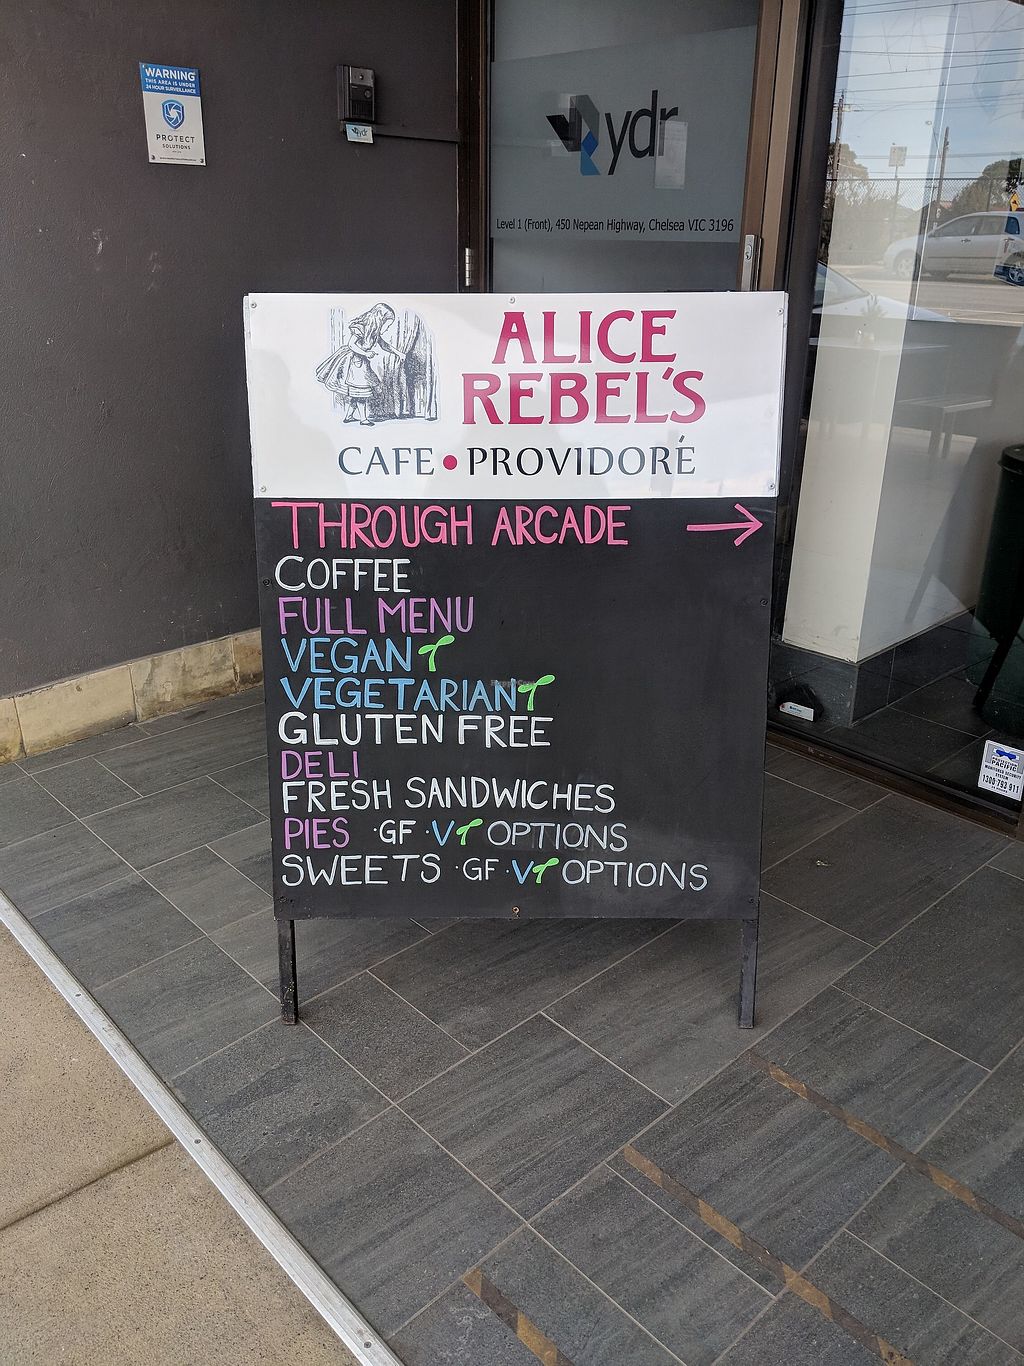 WARNING
THIS AREA IS UNDER
24 HOUR SURVEILLANCE
PROTECT
SOLUTIONS
ydr
ydr
Level 1 (Front), 450 Nepean Highway, Chelsea VIC 3196
ALICE
REBEL'S
CAFE • PROVIDORÉ
THROUGH ARCADE →
COFFEE
FULL MENU
VEGAN
VEGETARIAN
GLUTEN FREE
DELI
FRESH SANDWICHES
PIES ·GF ·V OPTIONS
SWEETS ·GF ·V OPTIONS
PACIFIC
MONITORED SECURITY
1300 793 911